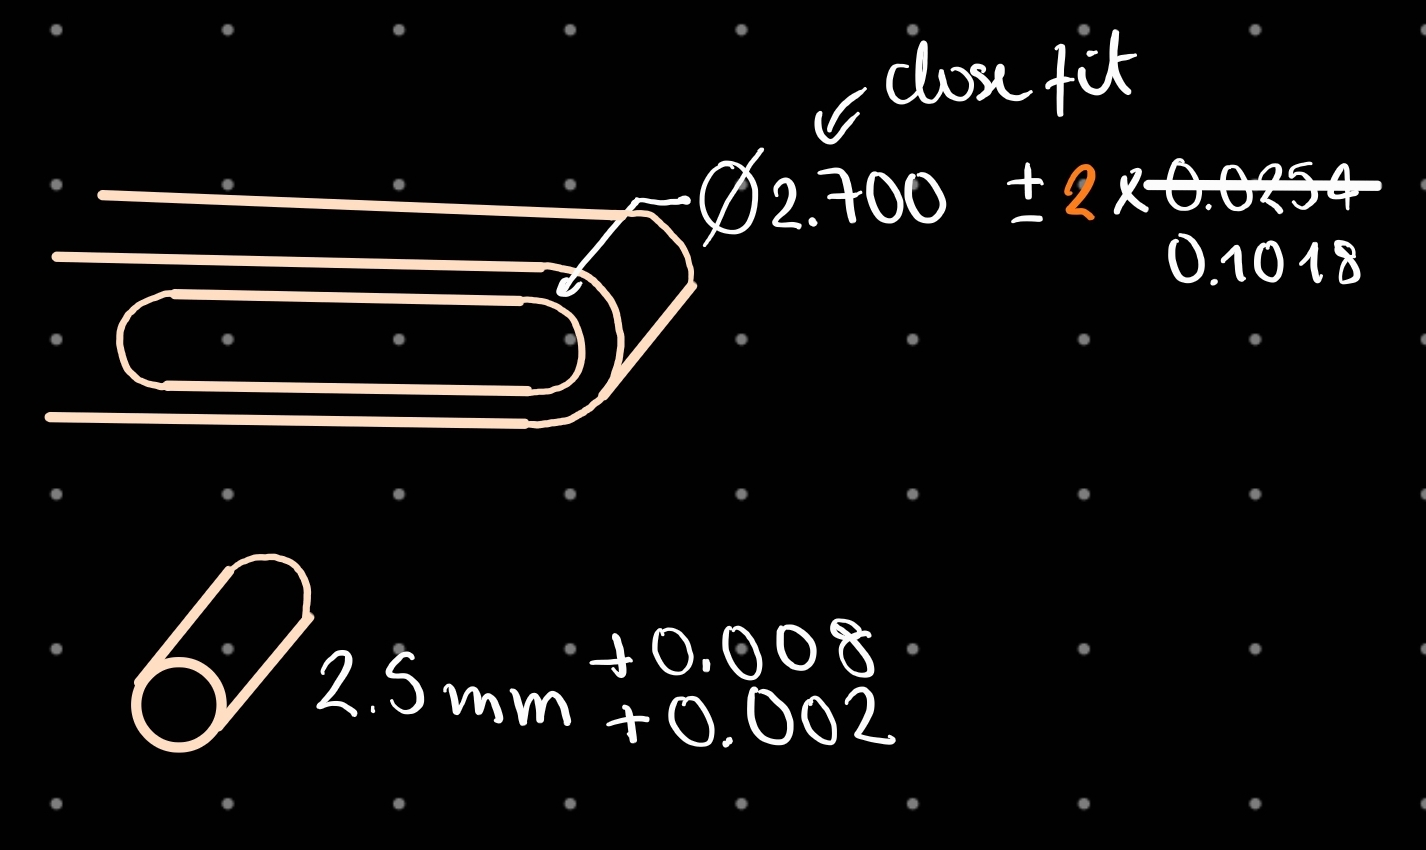 close fit
Ø2.700 ± 2 x 0.0254
0.1018
2.5mm +0.008
+0.002